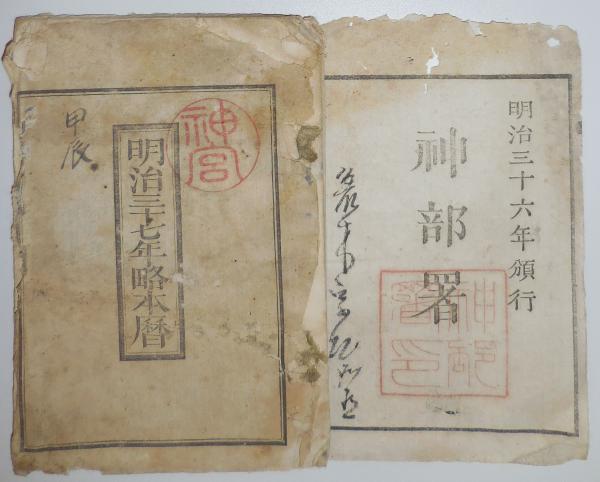 明治三十六年頒行
神部署
神部署印
神宮
甲辰
明治三十七年略本暦